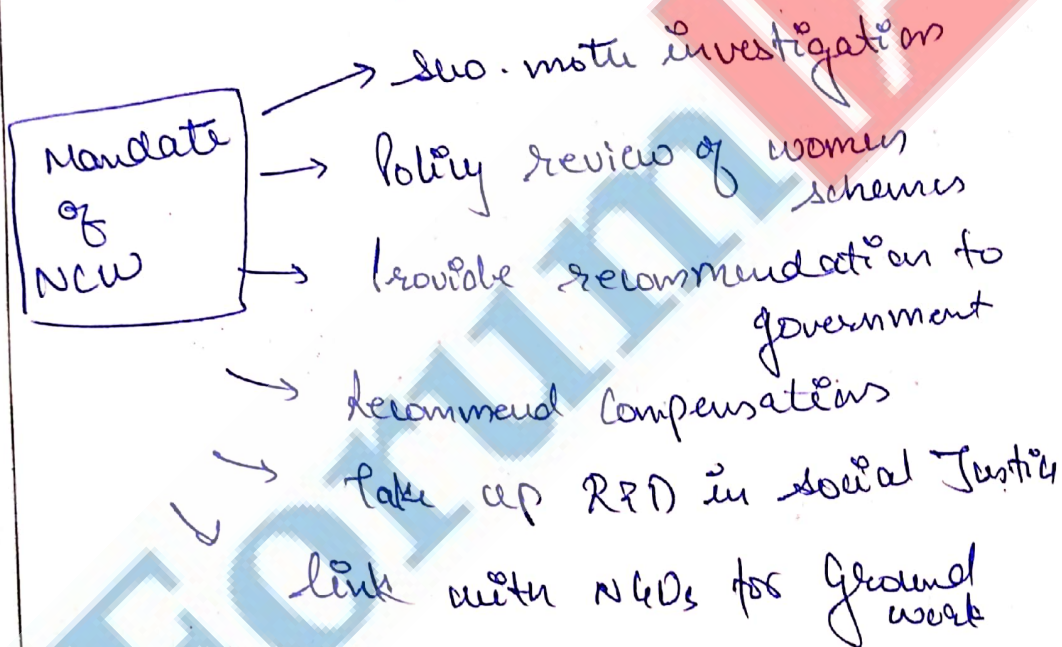 suo. motu investigation
Mandate
of
NCW
Policy review of women
schemes
Provide recommendation to
government
Recommend Compensations
Take up R&D in social Justice
link with NGOs for Ground
work
Forum